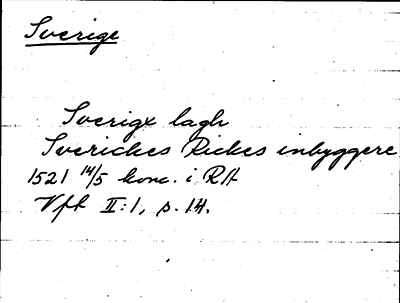 Sverige
Sverige lagh
Sverickes Rickes inbyggere
1521 14/5 konc. i RA
Vft II:1, p. 14.